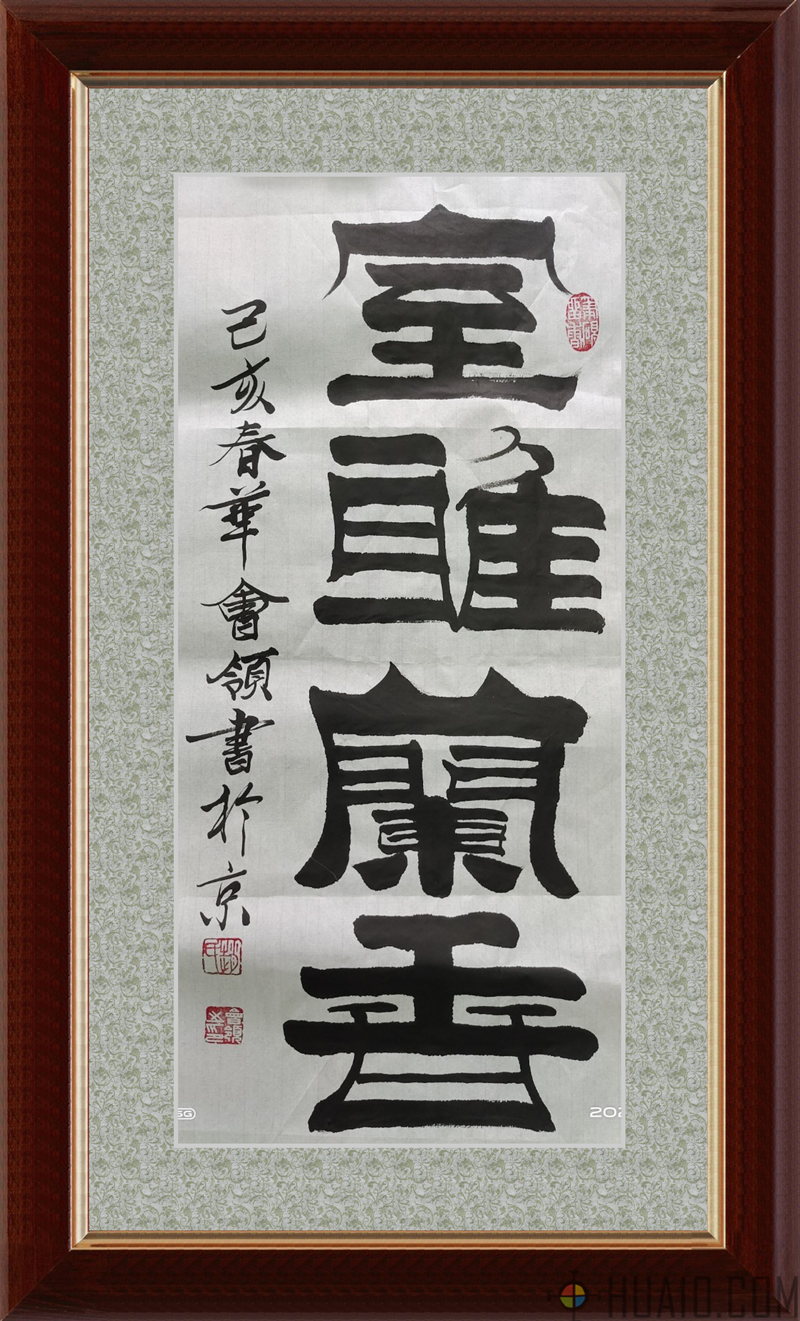 室雅蘭香
己亥春華會領書於京
5G
202
HUAIO.COM